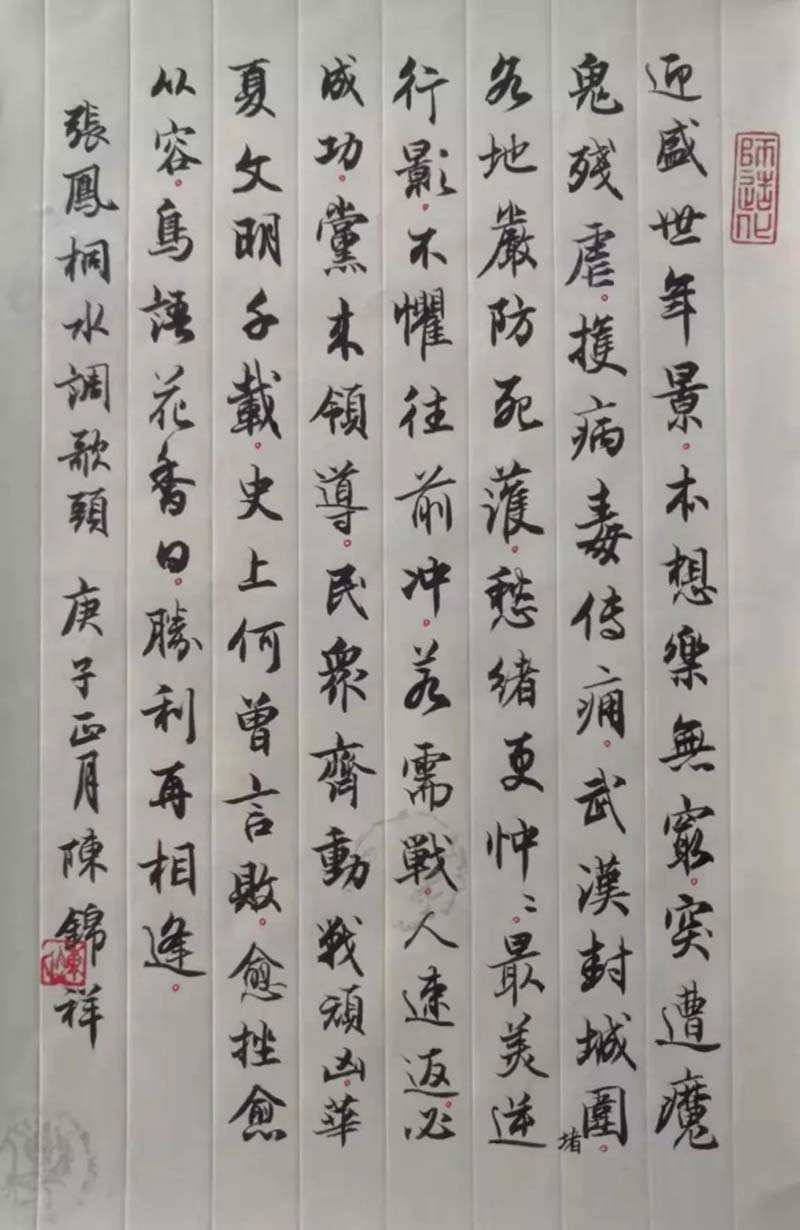 師造化
迎盛世年景。本想樂無窮。突遭魔
鬼殘虐。擭病毒传痈。武漢封城圍堵。
各地嚴防死護。愁緒更忡忡。最美逆
行影。不懼往前冲。若需戰。人速返。必
成功。黨来領導。民衆齊動戰頑凶。華
夏文明千載。史上何曾言敗。愈挫愈
从容。鳥語花香日。勝利再相逢。
張鳳桐水調歌頭 庚子正月陳錦祥